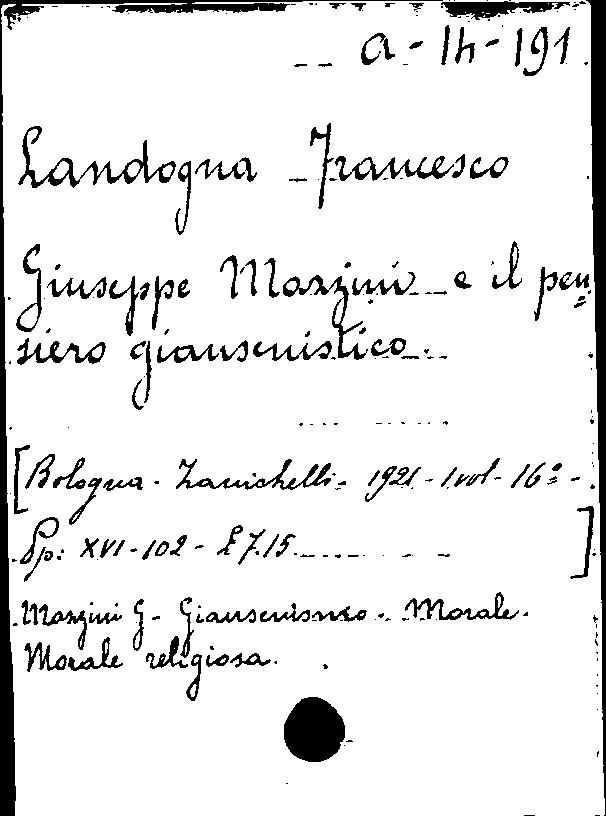 a-1h-191
Landogna Francesco
Giuseppe Mazzini e il pen=
siero giansenistico.
[Bologna - Zanichelli - 1921 - 1 vol - 16º -
Pp: XVI-102 - £ 7.15 ]
Mazzini G - Giansenismo - Morale.
Morale religiosa.